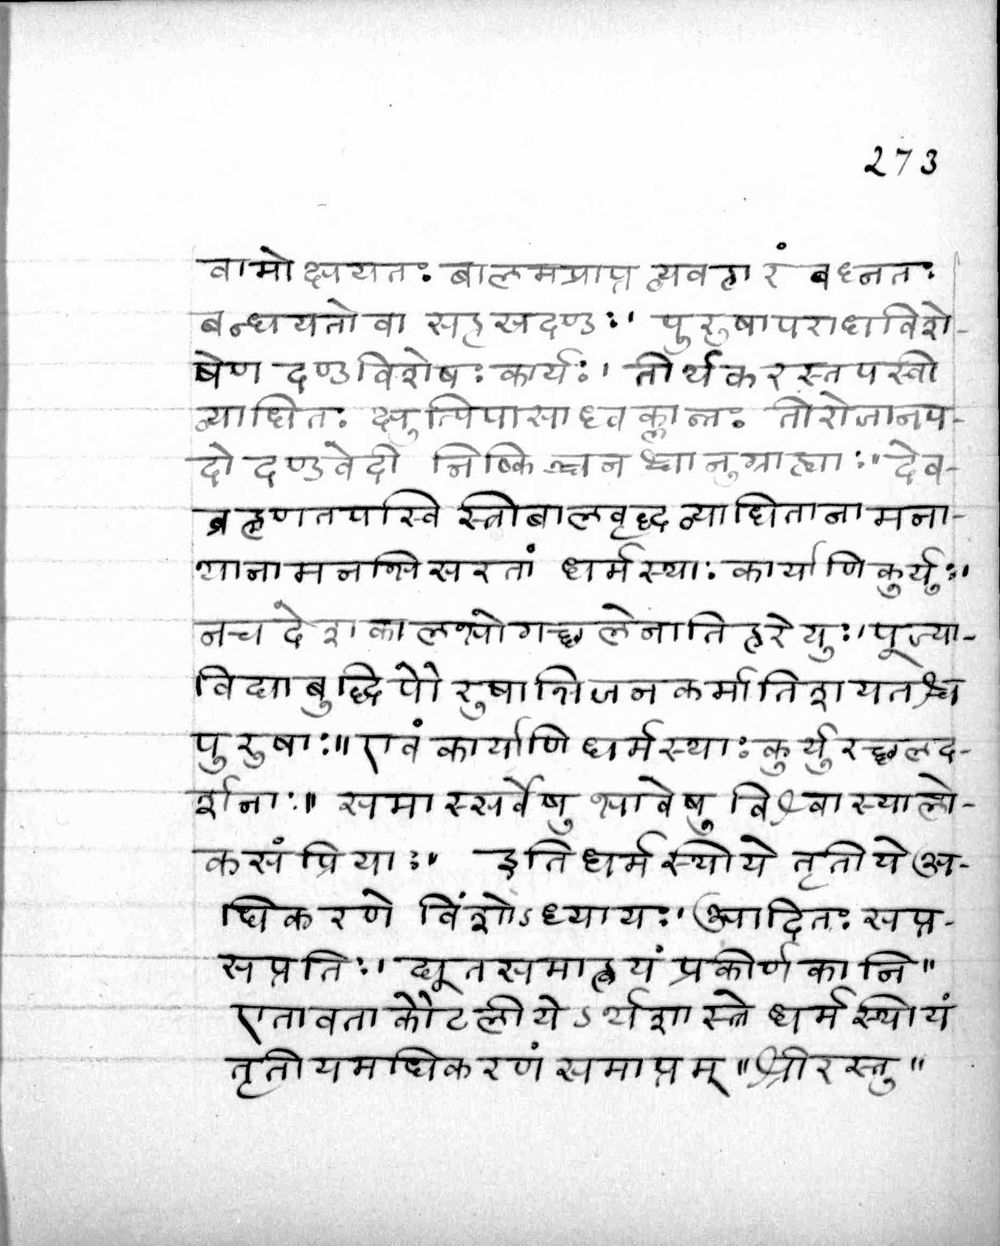 273
वामोक्षयतः बालमप्राप्तव्यवहारं बध्नतः
बन्धयतो वा सहस्रदण्डः।' पुरुषापराधविशे-
षेण दण्डविशेषः कार्यः।' तीर्थकरस्तपस्वी
व्याधितः क्षुत्पिपासाध्वक्लान्तः तीरोजानप-
दो दण्डवेदी निष्किञ्चनश्चानुग्राह्याः॥ देव-
ब्रह्मणतपस्वि स्त्रीबालवृद्धव्याधितानामना-
थानामनभिसरतां धर्मस्थाः कार्याणि कुर्युः॥
नच देशकालभोगच्छलेनातिहरेयुः।' पूज्या-
विद्याबुद्धिपौरुषाभिजनकर्मातिशयतश्च
पुरुषाः॥ एवं कार्याणि धर्मस्थाः कुर्युरच्छलद-
र्शनाः॥ समास्सर्वेषु भावेषु विश्वास्यालो-
कसंप्रियाः॥ इति धर्मस्थीये तृतीये अ-
धिकरणे विंशोऽध्यायः।' आदितः सप्त-
सप्ततिः।' द्यूतसमाह्वयं प्रकीर्णकानि॥
एतावता कौटलीयेऽर्थशास्त्रे धर्मस्थीयं
तृतीयमधिकरणं समाप्तम्॥ श्रीरस्तु॥